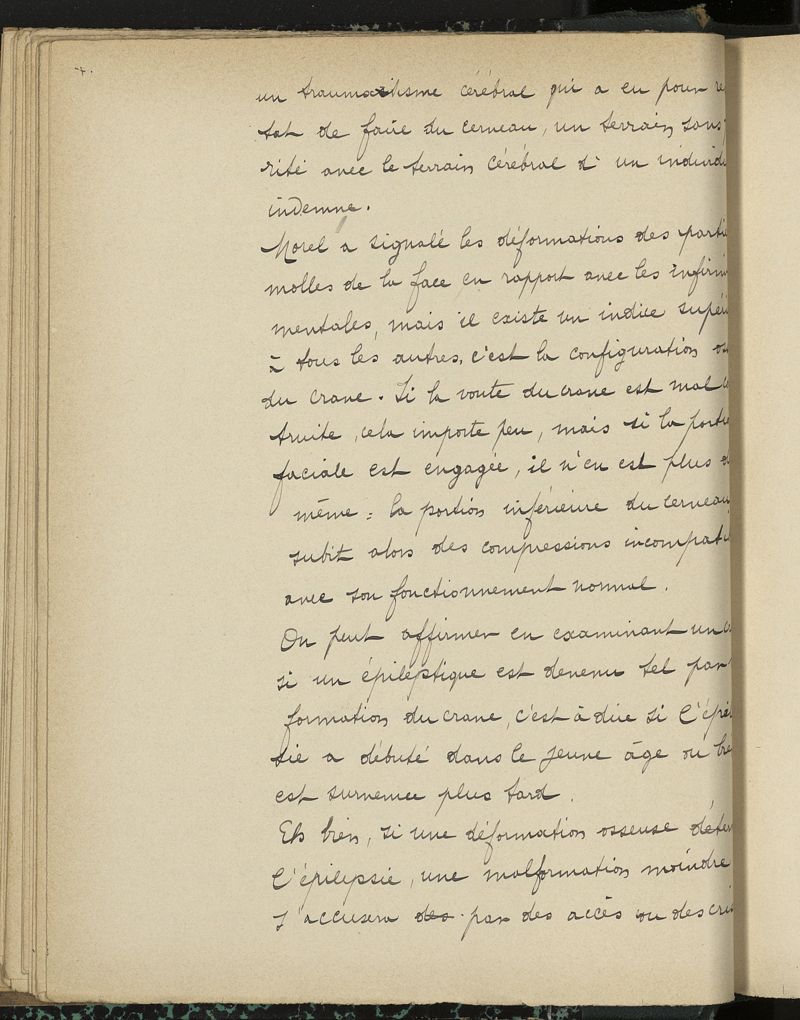 7.
un traumatisme cérébral qui a eu pour re
tat de faire du cerveau, un terrain sans
rité avec le terrain cérébral d'un individu
indemne.
Morel a signalé les déformations des partie
molles de la face en rapport avec les infirmi
mentales, mais il existe un indice supéri
à tous les autres, c'est la configuration os
du crane. Si la voute du crane est mal c
truite, cela importe peu, mais si la porti
faciale est engagée, il n'en est plus d
même : la portion inférieure du cerveau
subit alors des compressions incompati
avec son fonctionnement normal.
On peut affirmer en examinant un c
si un épileptique est devenu tel par
formation du crane, c'est à dire si l'épile
sie a débuté dans le jeune âge ou
est survenue plus tard.
Eh bien, si une déformation osseuse déter
l'épilepsie, une malformation moindre
s'accusera des par des accès ou des cri